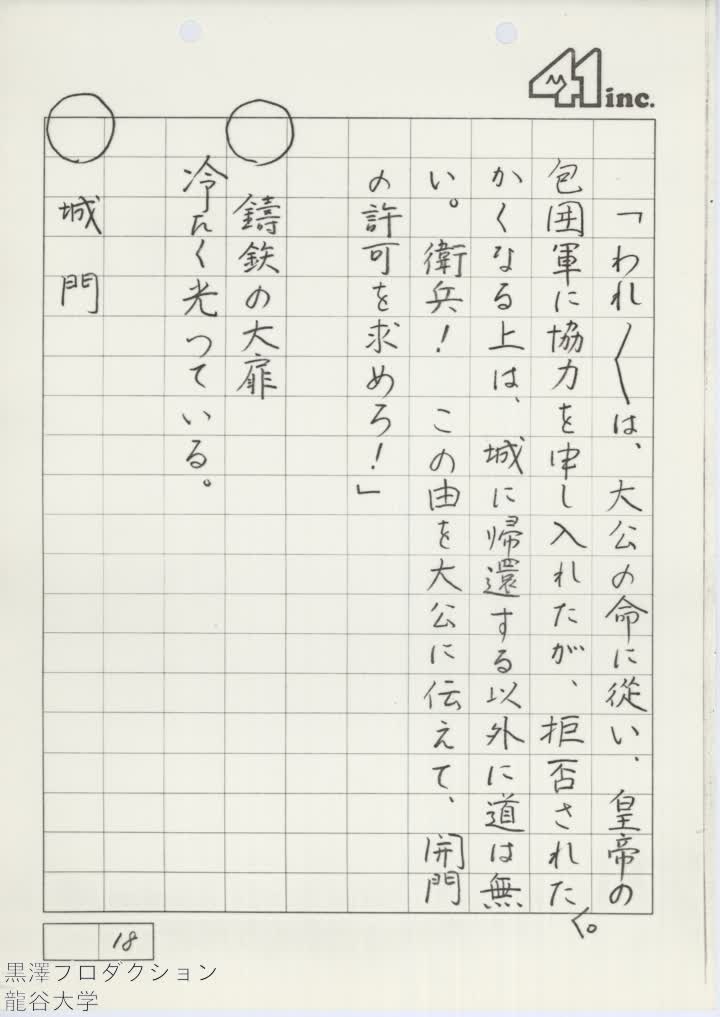 41 inc.
「われ〳〵は、大公の命に従い、皇帝の
包囲軍に協力を申し入れたが、拒否された。
かくなる上は、城に帰還する以外に道は無
い。衛兵！　この由を大公に伝えて、開門
の許可を求めろ！」
○　鋳鉄の大扉
冷たく光つている。
○　城　門
18
黒澤プロダクション
龍谷大学